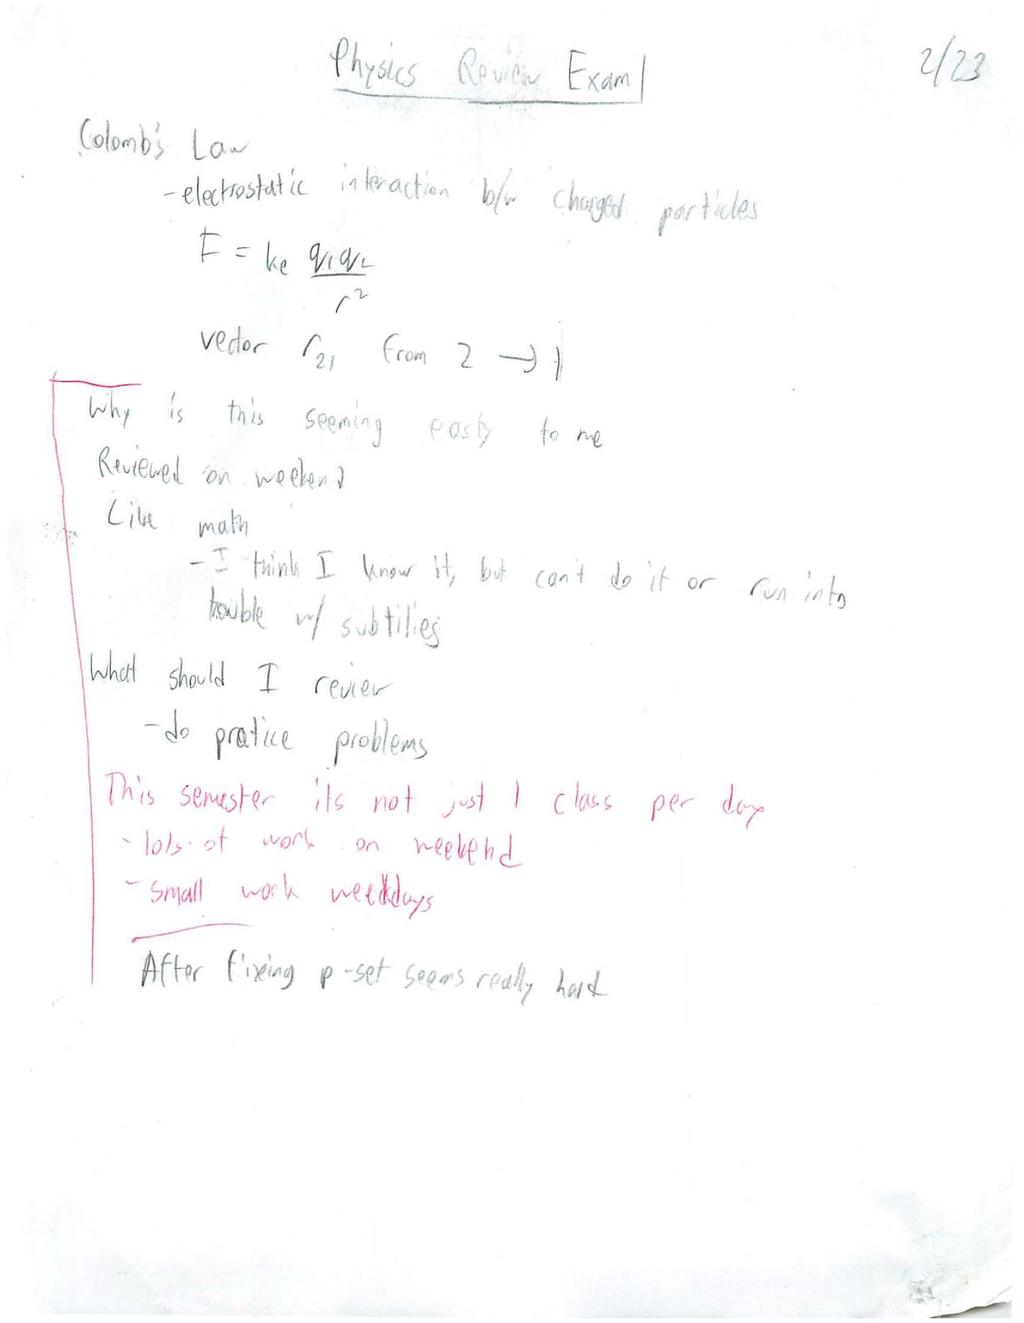 Physics Review Exam 2/23
Colomb's Law
- electrostatic interaction b/w charged particles
F = ke q1q2
r2
vector r21 from 2 → 1
Why is this seeming easly to me
Reviewed on weekend
Like math
- I think I know it, but can't do it or run into
trouble w/ subtilies
What should I review
- do pratice problems
This semester its not just 1 class per day
- lots of work on weekend
- small work weekdays
After fixing p-set seems really hard